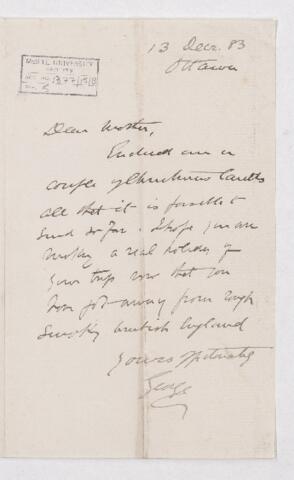 McGILL UNIVERSITY
ACC. NO. 1377/
13 Decr. 83
Ottawa
Dear Mother,
Enclosed are a
couple of Christmas Cards
all that it is possible to
send so far. I hope you are
making a real holiday of
your trip now that you
have got away from
smoky British England
Yours affectionately
George